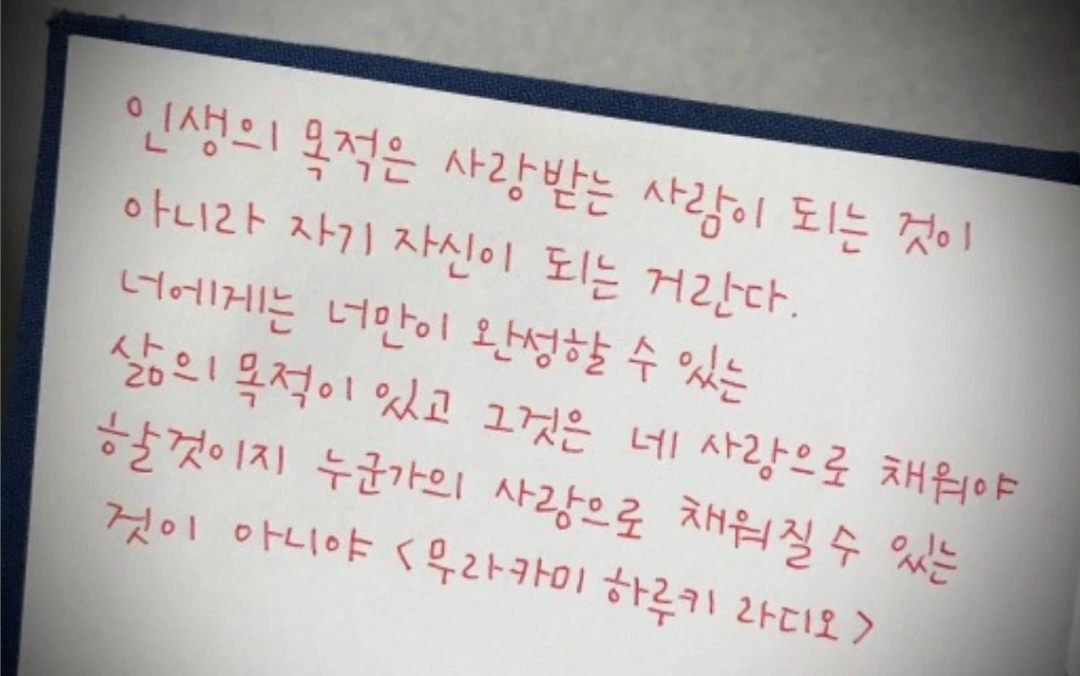 인생의 목적은 사랑받는 사람이 되는 것이
아니라 자기 자신이 되는 거란다.
너에게는 너만이 완성할 수 있는
삶의 목적이 있고 그것은 네 사랑으로 채워야
할것이지 누군가의 사랑으로 채워질 수 있는
것이 아니야 <무라카미 하루키 라디오>